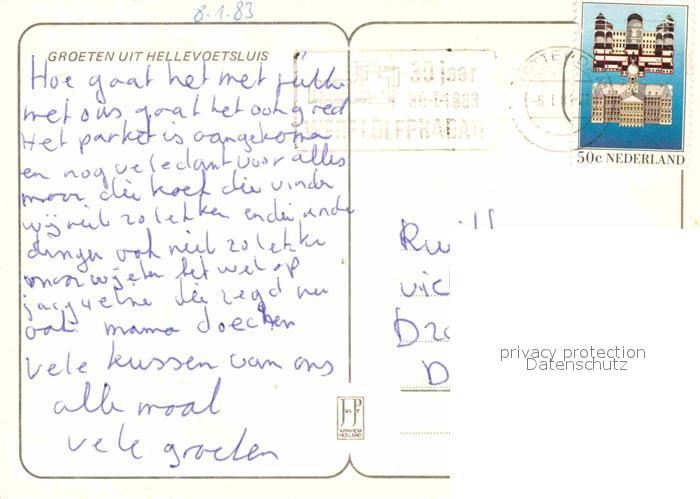 8.1.83
GROETEN UIT HELLEVOETSLUIS
Hoe gaat het met jullie
met ons gaat het ook goed
Het parket is aangekomen
en nog veledank voor alles
maar die koek die vinden
wij niet zo lekker en die ande
dingen ook niet zo lekker
maar wij eten het wel op
jacqueline die zegd nu
ook mama doechen
vele kussen van ons
alle maal
vele groeten
30 jaar
1983
WERELDLEPRADAG
50c NEDERLAND
Dzo
D
JosPe
ARNHEM
HOLLAND
privacy protection
Datenschutz